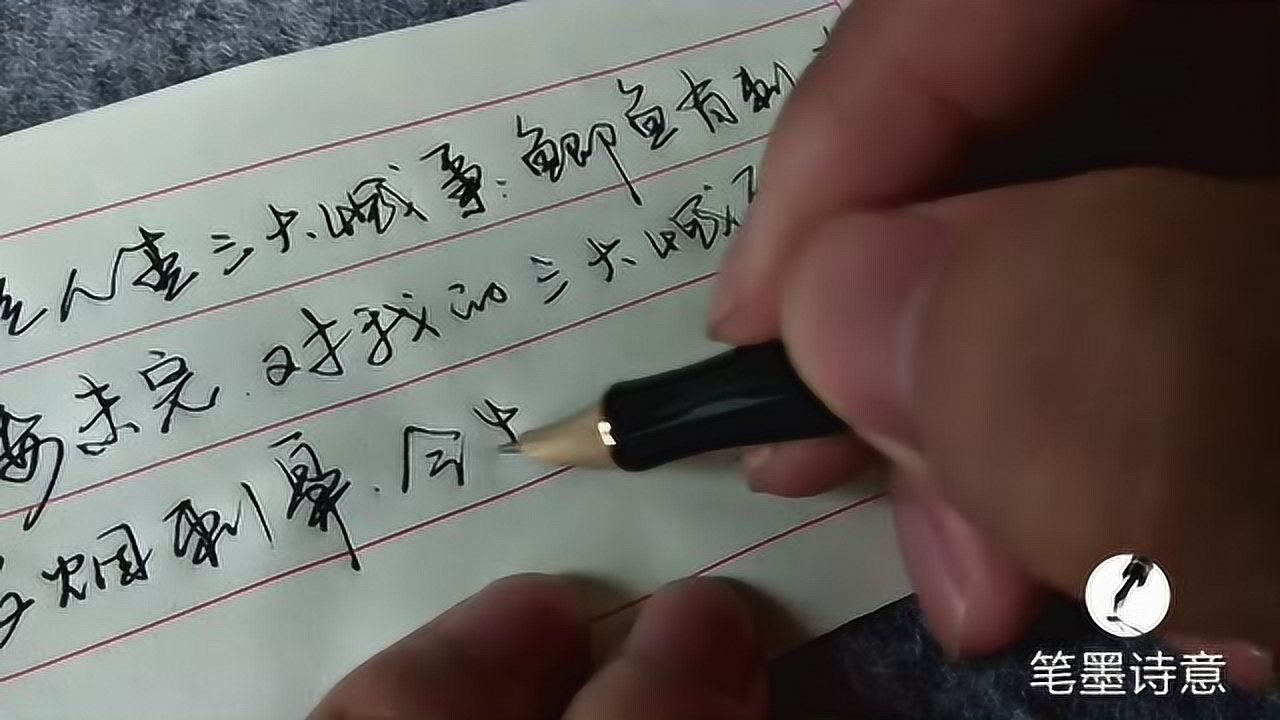 人生三大憾事:鲥鱼有刺
未完.对我的三大憾
烟刺鼻.同
笔墨诗意